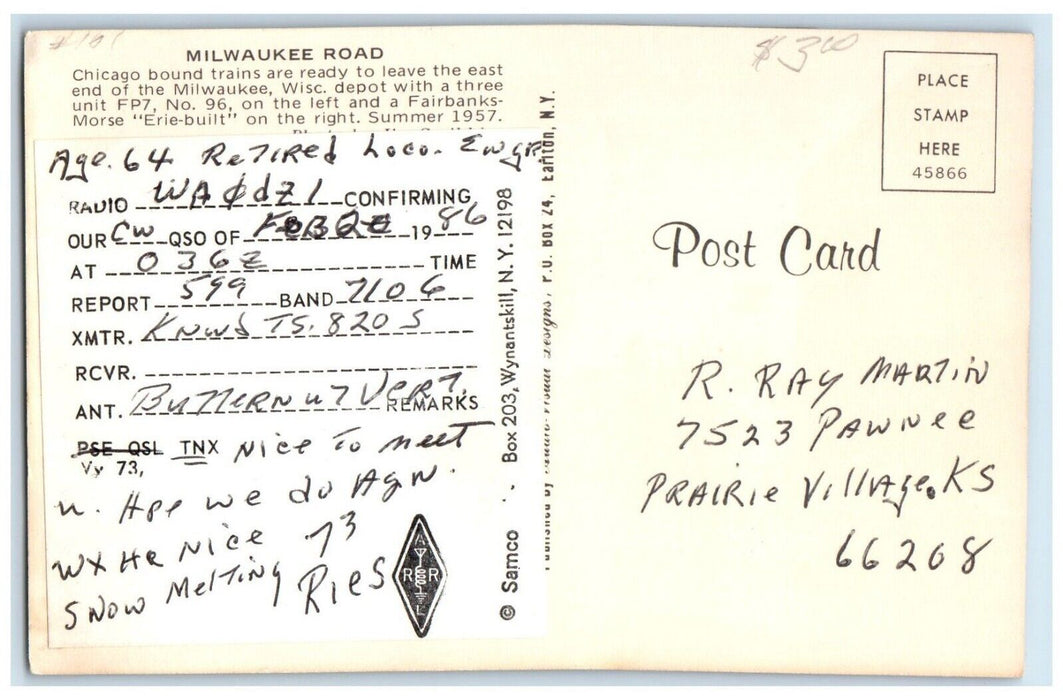 #101
$3.00
MILWAUKEE ROAD
Chicago bound trains are ready to leave the east
end of the Milwaukee, Wisc. depot with a three
unit FP7, No. 96, on the left and a Fairbanks-
Morse "Erie-built" on the right. Summer 1957.
Age. 64 Retired Loco. Engr
RADIO WAØdZ1 CONFIRMING
OUR CW QSO OF FEB 1986
AT 036Z TIME
REPORT 599 BAND 7106
XMTR. Knwd TS. 820 S
RCVR.
ANT. Butternut Vert. REMARKS
PSE QSL TNX Nice to meet
Vy 73,
u. Hpe we do Agn.
WX He Nice 73
Snow Melting Ries
ARRL
© Samco Box 203, Wynantskill, N. Y. 12198
Published by Audio-Visual Designs, P.O. Box 24, Earlton, N.Y.
PLACE
STAMP
HERE
45866
Post Card
R. RAY MARTIN
7523 PAWNee
PRAIRie VillAge. KS
66208